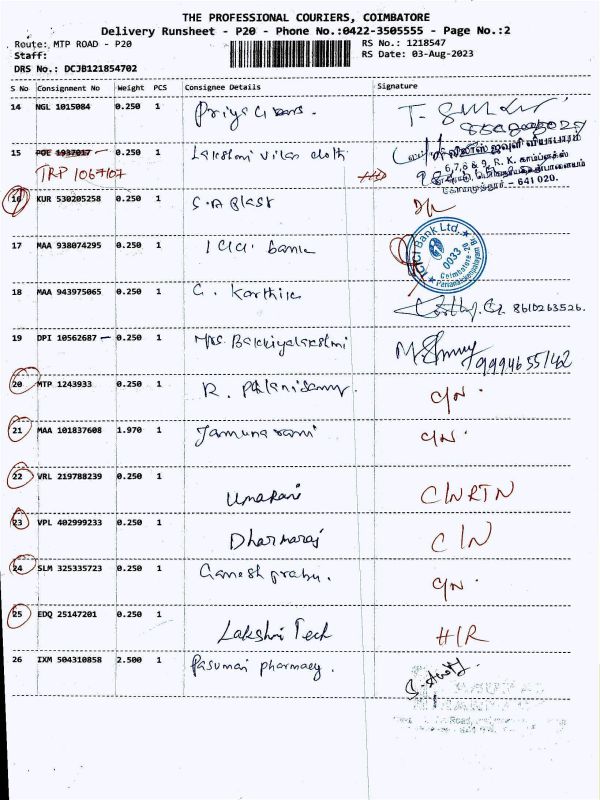 THE PROFESSIONAL COURIERS, COIMBATORE
Delivery Runsheet - P20 - Phone No.:0422-3505555 - Page No.:2
Route: MTP ROAD - P20 RS No.: 1218547
Staff: RS Date: 03-Aug-2023
DRS No.: DCJB121854702
S No Consignment No Weight PCS Consignee Details Signature
14 NGL 1015084 0.250 1
15 POE 1937017 0.250 1 Lakshmi vilas cloth
TRP 1067107
6,7,8 & 9, R. K. காம்ப்ளக்ஸ்
கோயமுத்தூர் - 641 020.
16 KUR 530205258 0.250 1 S.A Blast
17 MAA 938074295 0.250 1 ICICI bank
ICICI Bank Ltd. 0033 Coimbatore-20
18 MAA 943975065 0.250 1 G. Karthik 8610263526.
19 DPI 10562687 0.250 1 Mrs. Bakkiyalakshmi
9994655142
20 MTP 1243933 0.250 1 R. Palanisamy. C/N.
21 MAA 101837608 1.970 1 Jamunarani C/N.
22 VRL 219788239 0.250 1 Umarani C/N RTN
23 VPL 402999233 0.250 1 Dharmaraj C/N
24 SLM 325335723 0.250 1 Ganesh prabu. C/N.
25 EDQ 25147201 0.250 1 Lakshmi Tech H/R
26 IXM 504310858 2.500 1 Pasumai pharmacy.